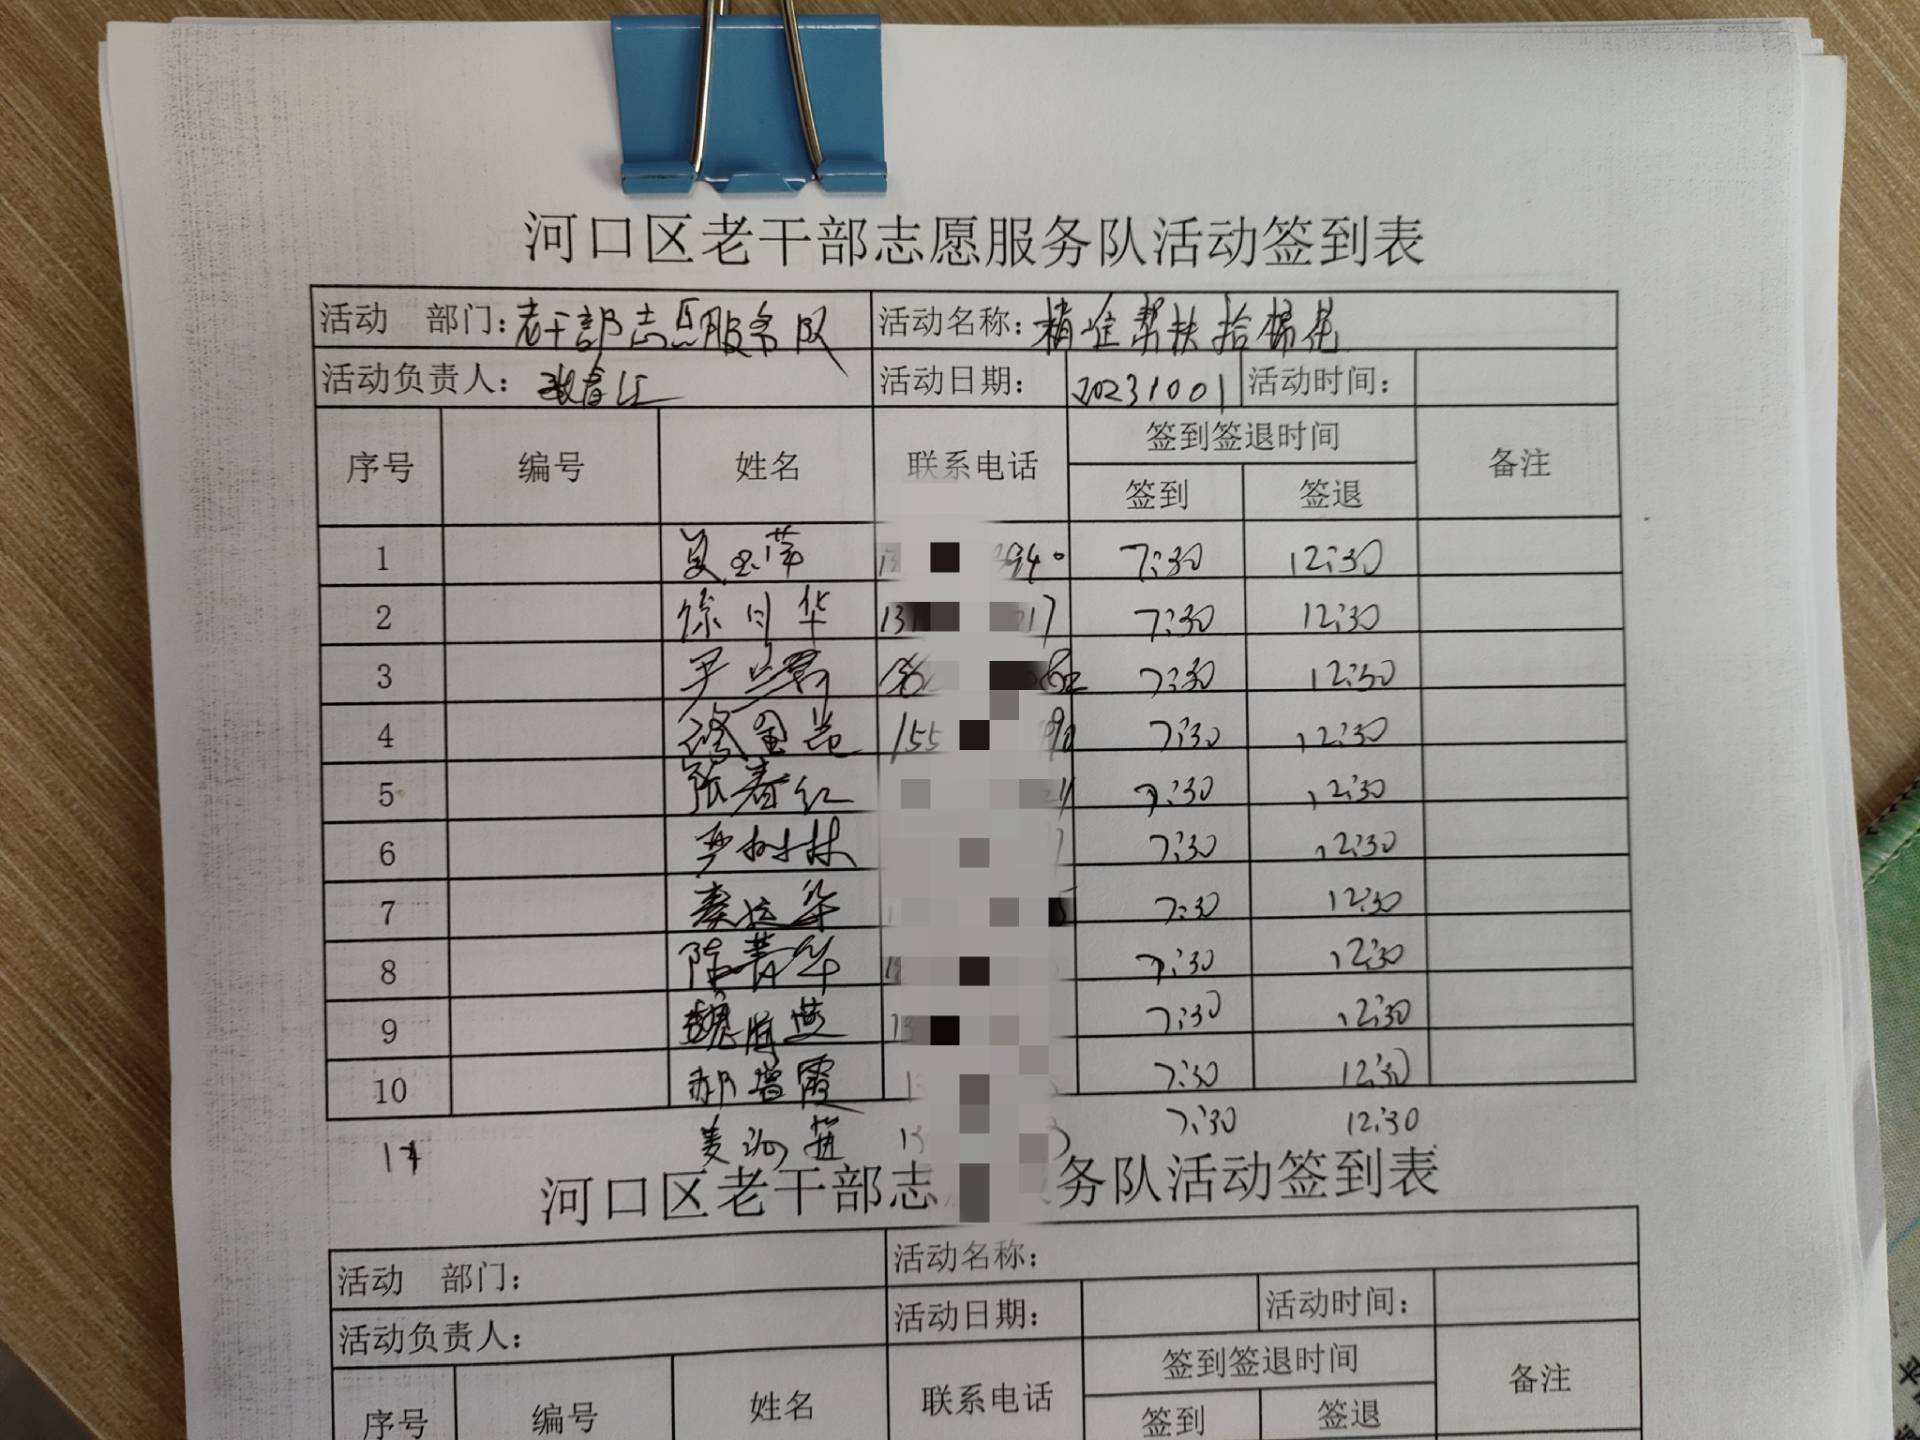 河口区老干部志愿服务队活动签到表
活动 部门：老干部志愿服务队 活动名称：精准帮扶拾棉花
活动负责人： 活动日期： 20231001 活动时间：
序号 编号 姓名 联系电话 签到签退时间 备注
签到 签退
1 7:30 12:30
2 徐月华 131 17 7:30 12:30
3 7:30 12:30
4 155 7:30 12:30
5 张春红 7:30 12:30
6 严树林 7:30 12:30
7 秦运华 7:30 12:30
8 陈菁华 7:30 12:30
9 魏海燕 13 7:30 12:30
10 郝增霞 7:30 12:30
11 13 7:30 12:30
河口区老干部志 务队活动签到表
活动 部门： 活动名称：
活动负责人： 活动日期： 活动时间：
序号 编号 姓名 联系电话 签到签退时间 备注
签到 签退